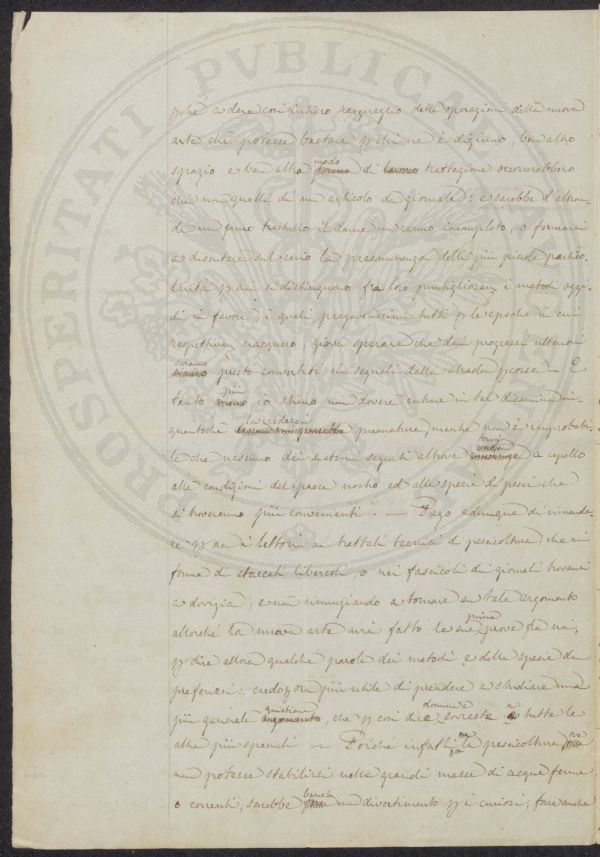 pchè a dare con intiero ragguaglio delle operazioni della nuova
arte che potesse bastare p chi ne è digiuno, ben altro
spazio e ben altro modo di trattazione occorrerebbero
che non quelli di un articolo di giornale: e sarebbe d'altron-
de un puro trastullo il darne un cenno incompleto, o fermarsi
a discutere sul serio la preeminenza delle più piccole partico-
larità p cui si distinguono fra loro i metodi oggi-
di in favore, i quali pregevolissimi tutti p le epoche in cui
respettivam nacquero, giova sperare che dai progressi ulteriori
saranno presto convertiti in segnali della strada pcorsa — E
tanto più io stimo non dovere entrare in tal disamina in-
quantochè la crederei prematura, mentre non è improbabi-
le che nessuno dei sistemi seguiti altrove torni a capello
alle condizioni del paese nostro ed alle specie di pesci che
si troveranno più convenienti. — Pago adunque di rimanda-
re p ora i lettori ai trattati tecnici di pescicoltura che in
forma di staccati libercoli, o nei fascicoli dei giornali trovansi
a dovizia, e non rinunziando a tornare su tale argomento
allorchè la nuova arte avrà fatto le sue prime prove fra noi,
p dire allora qualche parola dei metodi e delle specie da
preferirsi; credo p ora più utile di prendere a studiare una
più generale quistione, che p così dire domina e sovrasta a tutte le
altre più speciali — Poichè infatti la pescicoltura
non potesse stabilirsi nelle grandi masse di acque ferme
o correnti, sarebbe bensì un divertimento p i curiosi, forse anche